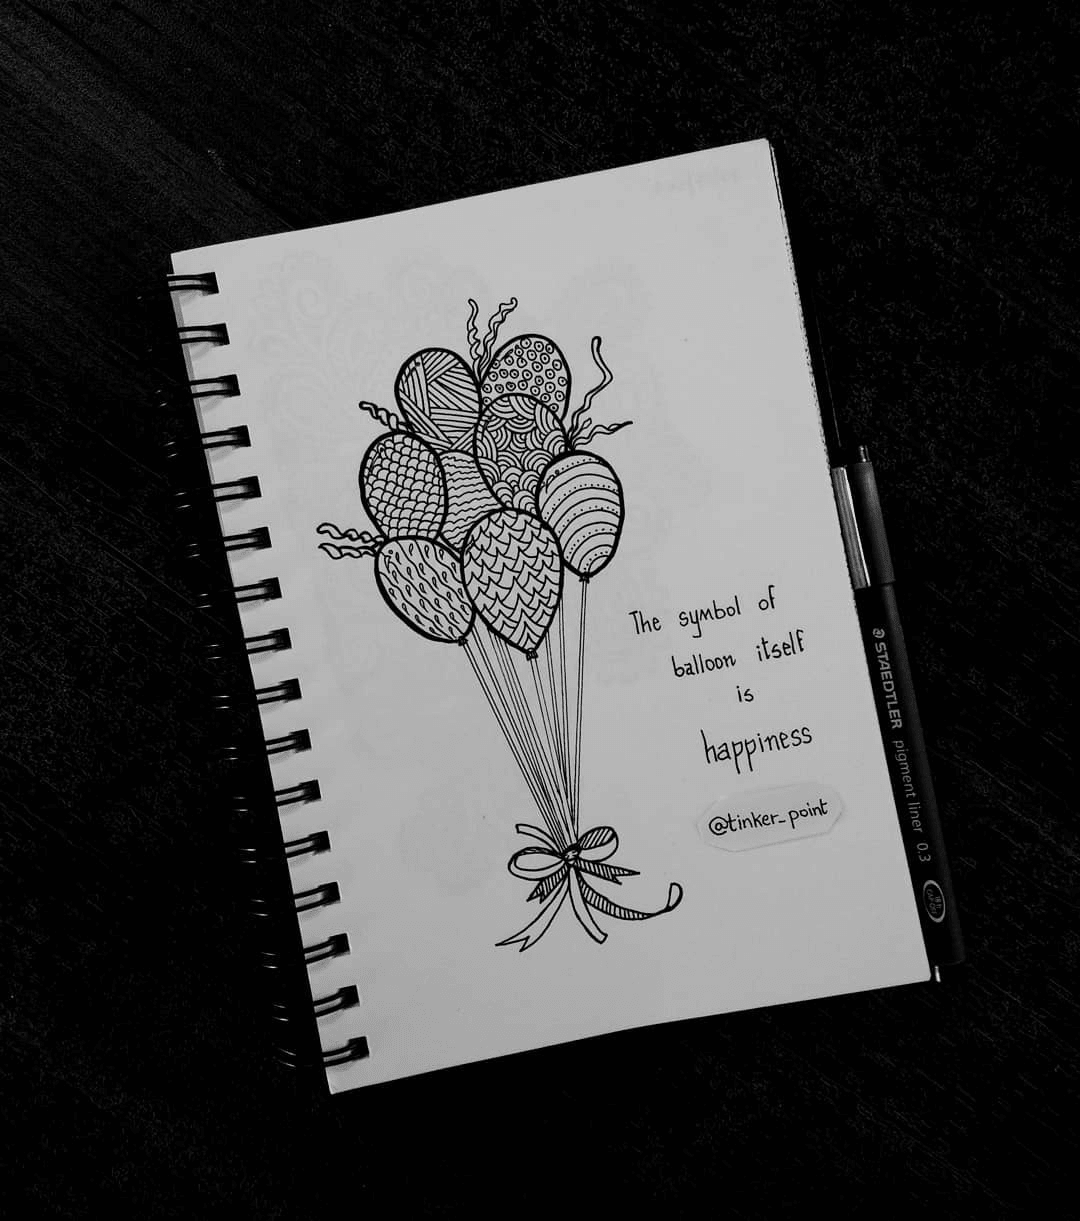 The symbol of
balloon itself
is
happiness
@tinker_point
STAEDTLER pigment liner 0.3